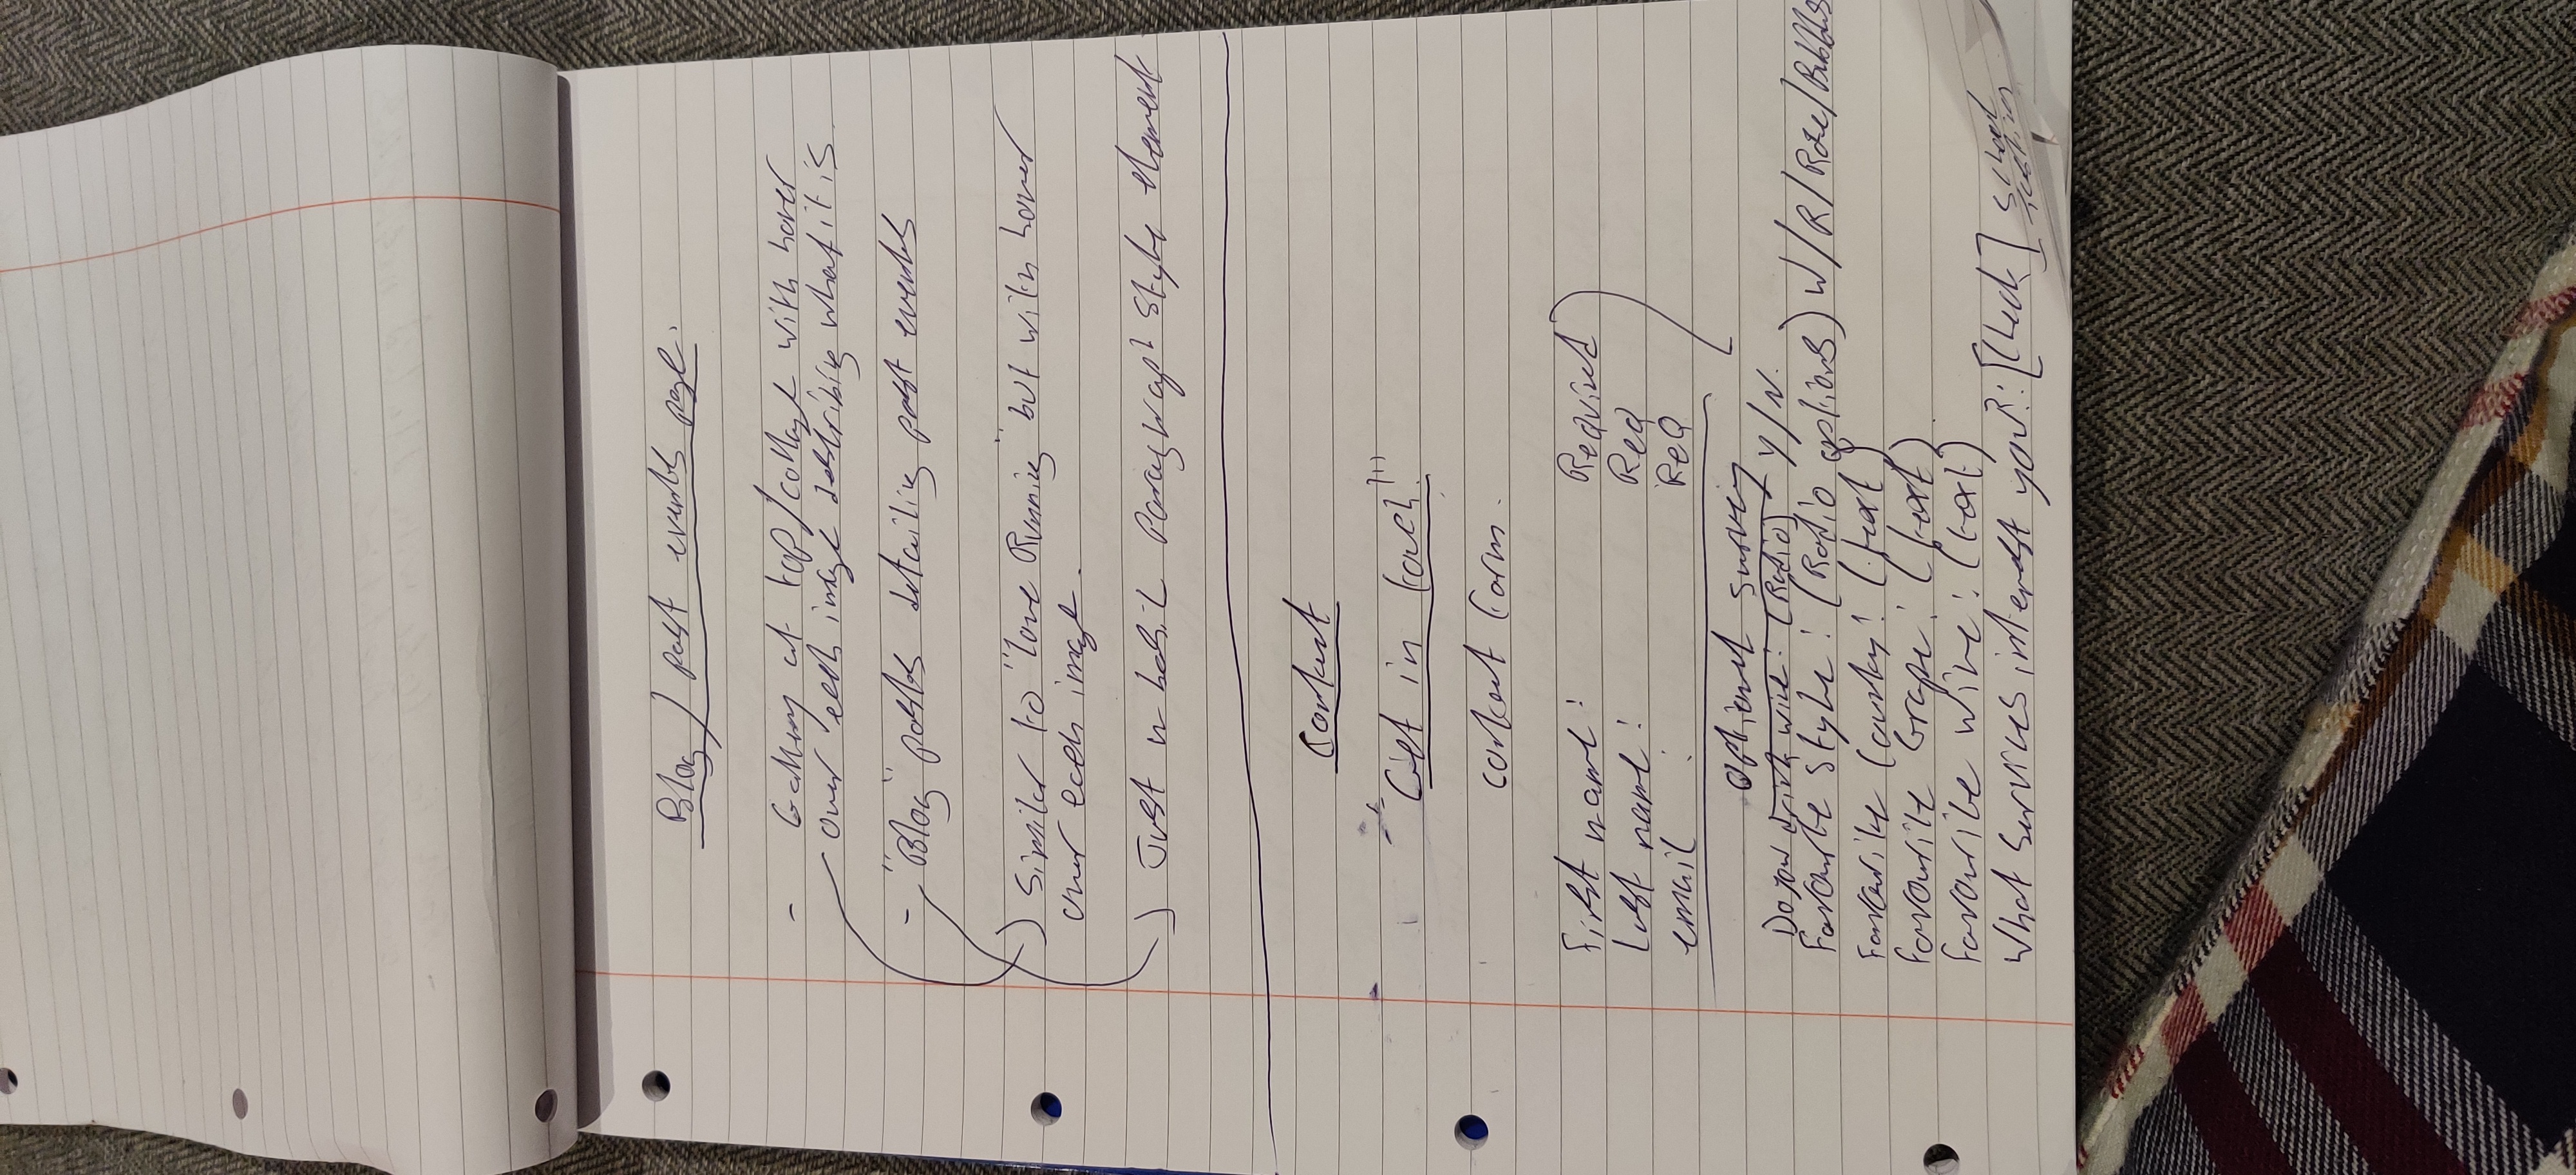 Blog / past events page.
- Gallery at top/collage with hover
over each image describing what it is
- "Blog" posts detailing past events
Similar to "Love Running" but with hover
over each image.
Just a basic paragraph style element
Contact
"Get in touch!"
contact form.
First name: Required
Last name: Req
email : ReQ
Optional survey
Do you drink wine: (Radio) Y/N.
Favourite Style: (Radio options) W/R/Rose/Bubbles
Favourite Country: (text)
Favourite Grape: (text)
Favourite Wine: (text)
What Services interest you?: [Check]